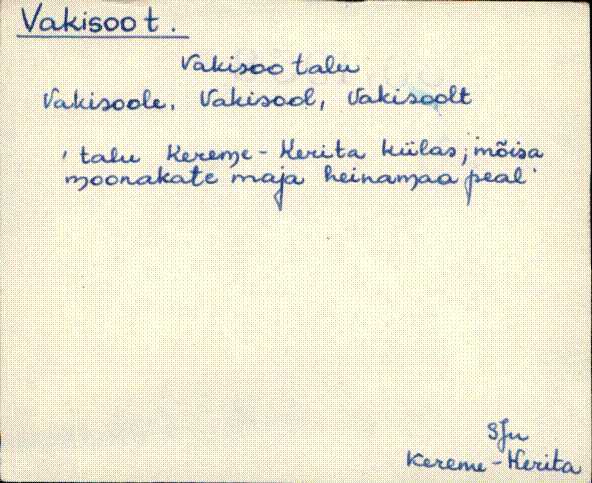 Vakisoo t.
Vakisoo talu
Vakisoole, Vakisool, Vakisoolt
'talu Kereme-Kerita külas; mõisa
moonakate maja heinamaa peal'
SJn
Kereme-Kerita